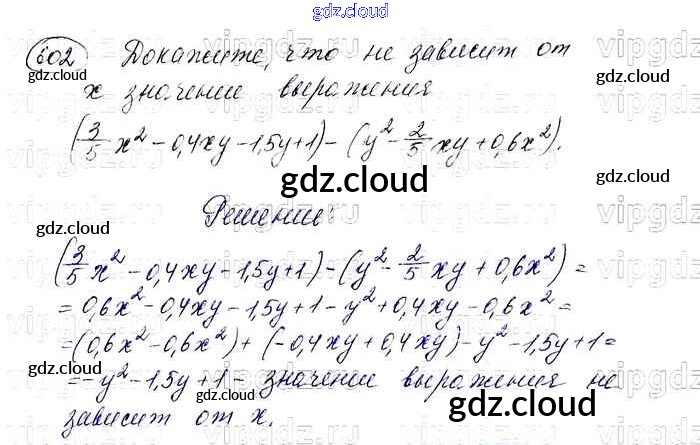 gdz.cloud
602 Докажите, что не зависит от
x значение выражения
(3/5 x² - 0,4xy - 1,5y + 1) - (y² - 2/5 xy + 0,6x²).
gdz.cloud
Решение:
(3/5 x² - 0,4xy - 1,5y + 1) - (y² - 2/5 xy + 0,6x²) =
= 0,6x² - 0,4xy - 1,5y + 1 - y² + 0,4xy - 0,6x² =
= (0,6x² - 0,6x²) + (-0,4xy + 0,4xy) - y² - 1,5y + 1 =
= -y² - 1,5y + 1 - значение выражения не
зависит от x.
gdz.cloud